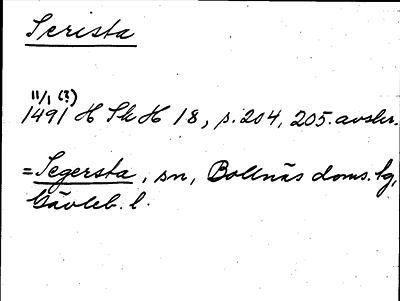 Serista
11/1 (?)
1491 H Sk H 18, s. 204, 205. avskr.
= Segersta, sn, Bollnäs doms. lg,
Gävleb. l.